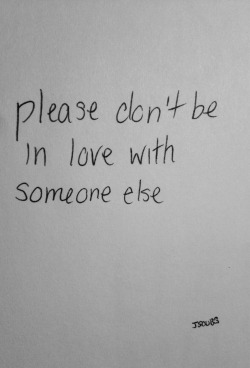 please don't be
in love with
someone else